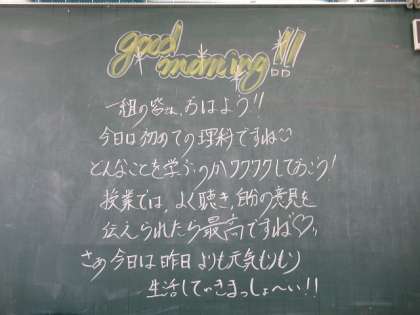 good
morning!!!
一組の皆さん、おはよう!!
今日は初めての理科ですね
どんなことを学ぶのかワクワクしておこう!
授業では、よく聴き、自分の意見を
伝えられたら最高ですね♡
さあ今日は昨日よりも元気もりもり
生活していきまっしょ〜い!!